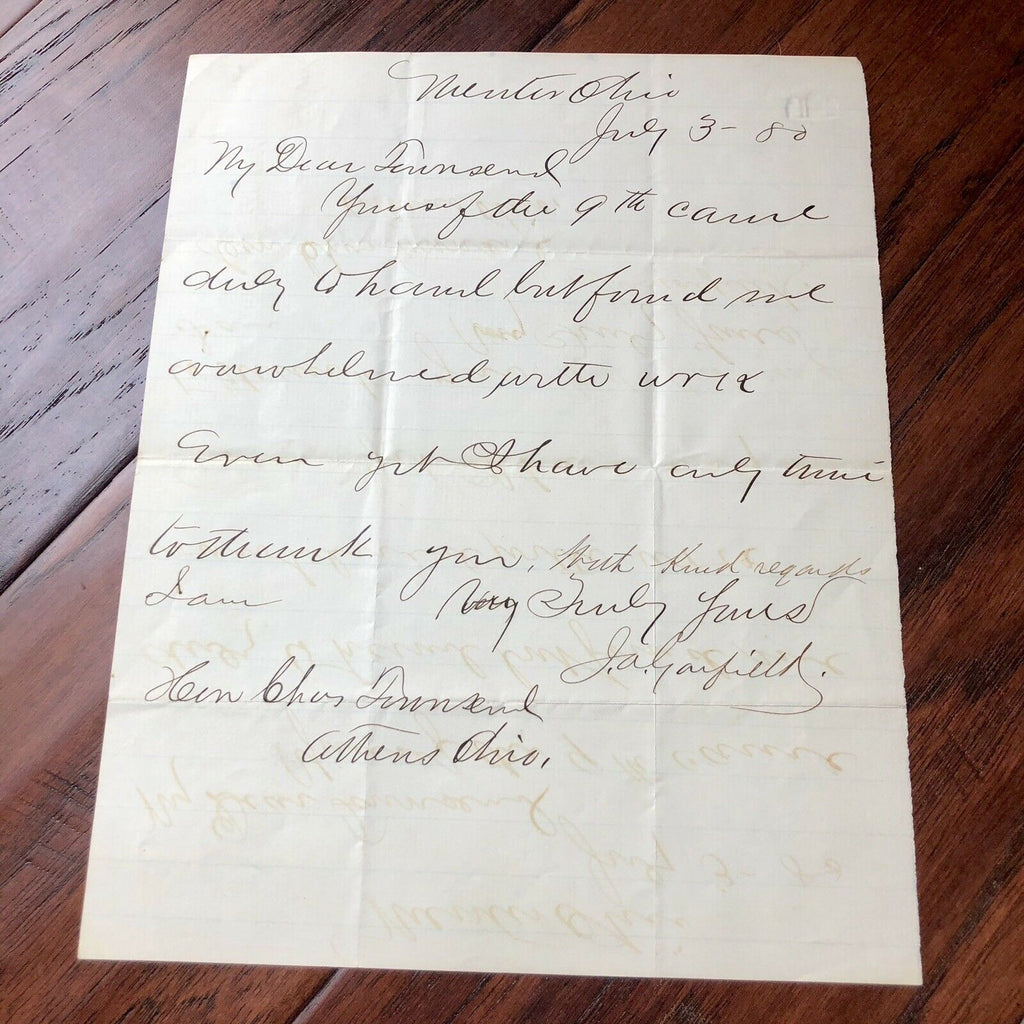 Mentor Ohio
July 3 - 80
My Dear Townsend
Yours of the 9th came
duly to hand but found me
overwhelmed with work
Even yet I have only time
to thank you, With Kind regards
I am Very Truly Yours
J.A. Garfield.
Hon Chas Townsend
Athens Ohio.